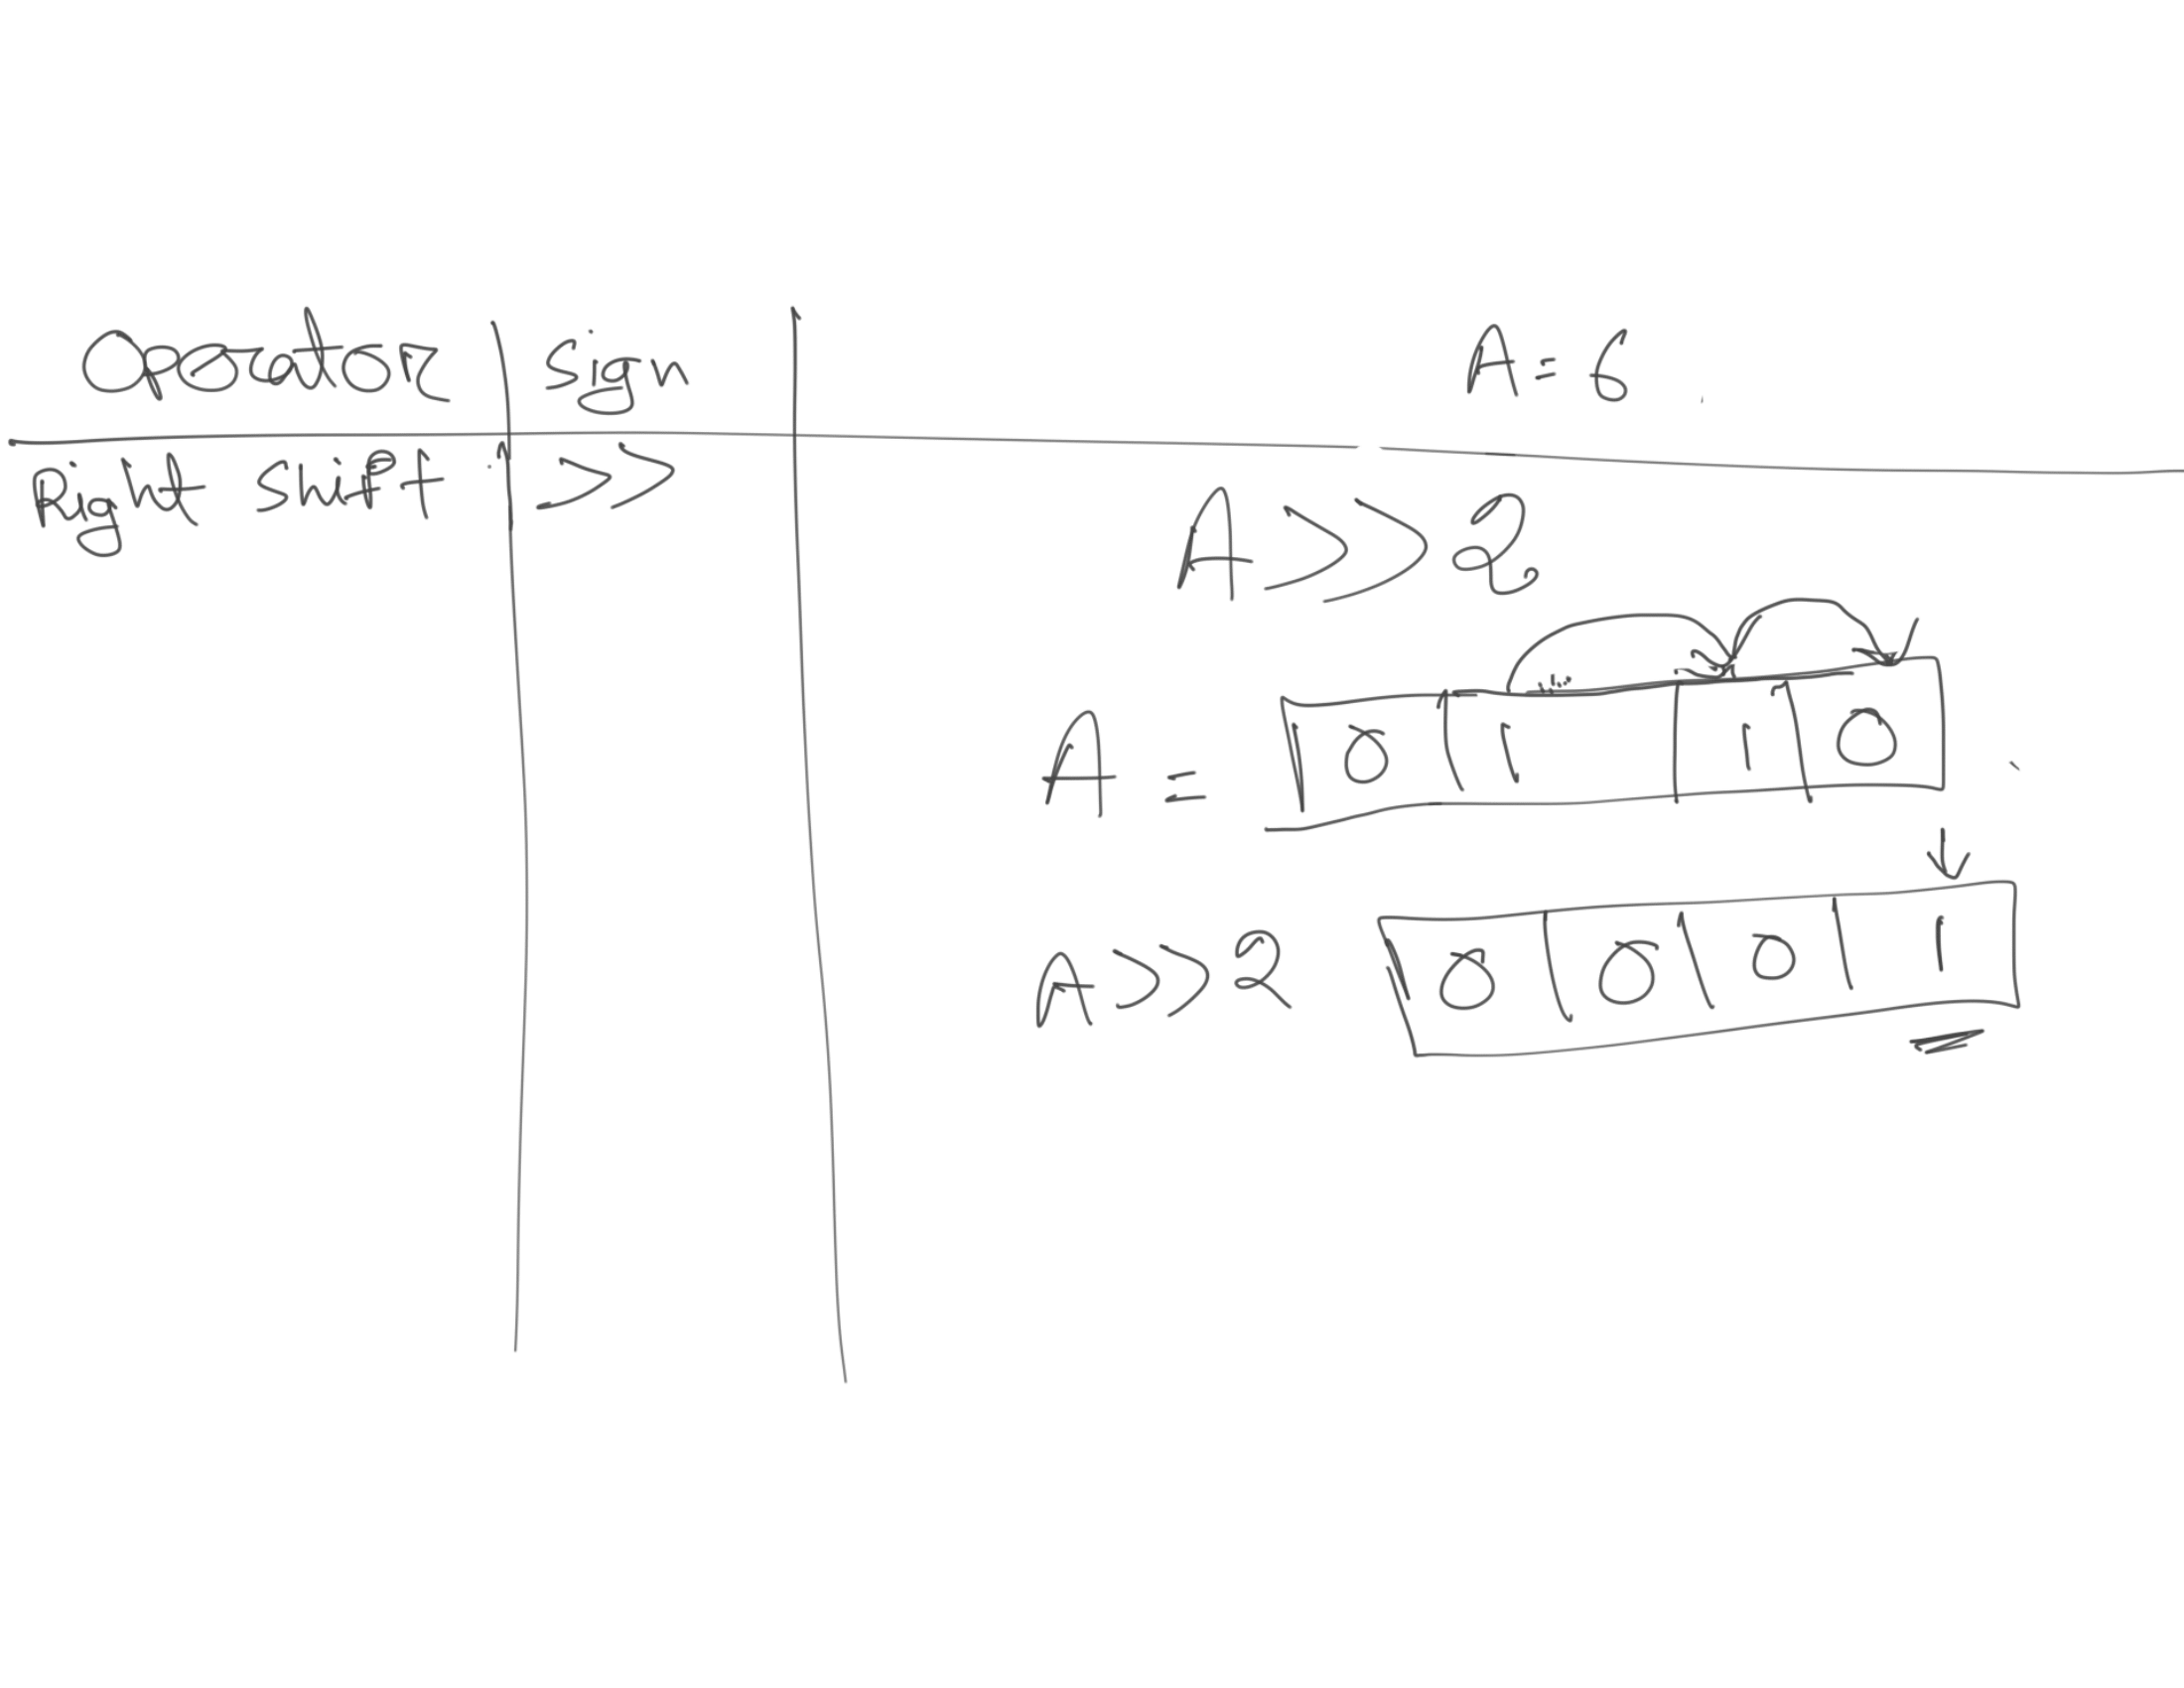 Operator sign A = 6
Right shift >> A >> 2
A = 0 1 1 0
A >> 2 0 0 0 1